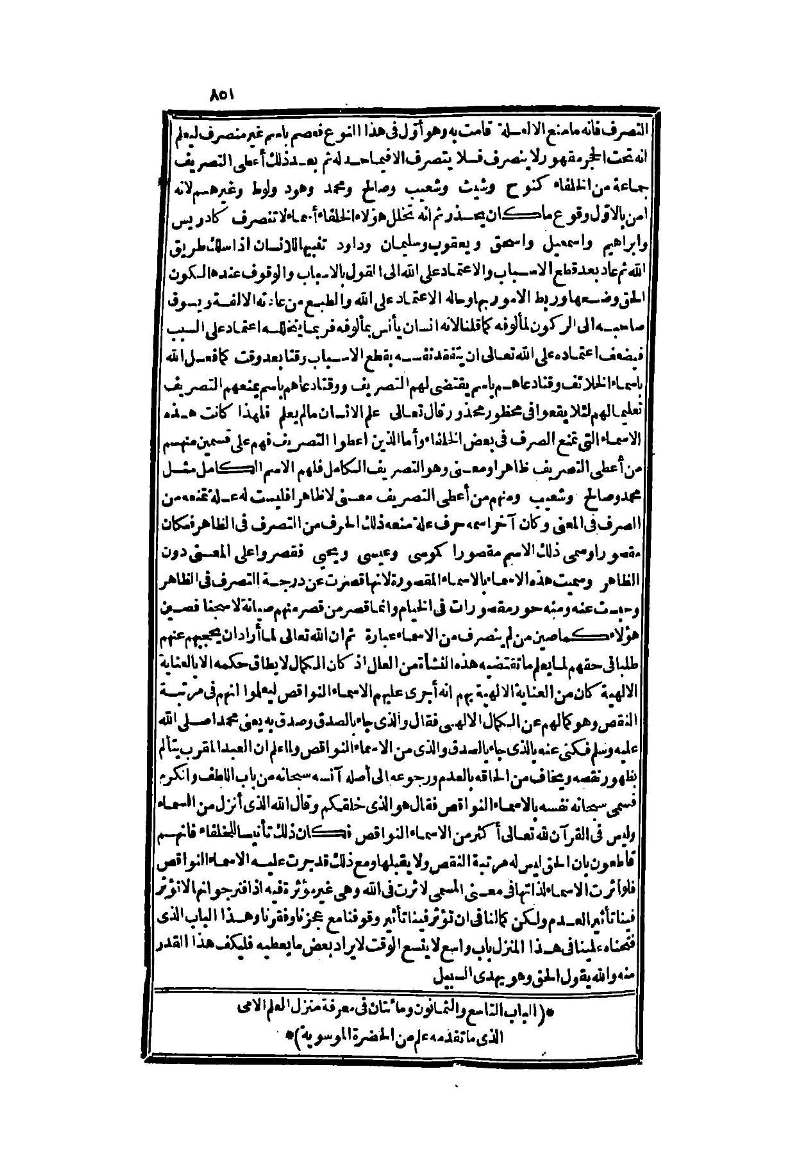 ٨٥١
التصرف فانه ما منع الا لعلة قامت به وهو أول فى هذا النوع فعصم باسم غير منصرف ليعلم
انه تحت الحجر مقهور لا ينصرف فلا يتصرف الا فيما حد له ثم بعد ذلك أعطى التصريف
جماعة من الخلفاء كنوح وشيث وشعيب وصالح ومحمد وهود ولوط وغيرهم لانه
أمن بالاول وقوع ما كان يحذر ثم انه تخلل هؤلاء الخلفاء أسماء لا تنصرف كادريس
وابراهيم واسمعيل واسحق ويعقوب وسليمان وداود تنبيها للانسان اذا سلك طريق
الله ثم عاد بعد قطع الاسباب والاعتماد على الله الى القول بالاسباب والوقوف عندها لكون
الحق وضعها وربط الامور بها وحاله الاعتماد على الله والطبع من عادته الالفة ويسوق
صاحبه الى الركون لمألوفه كما قلنا لانه انسان يأنس بمألوفه فربما يتخلله اعتماد على السبب
فيضعف اعتماده على الله تعالى ان يتفقد نفسه بقطع الاسباب وقتا بعد وقت كما فعل الله
باسماء الخلائف وقتا دعاهم باسم يقتضى لهم التصريف ووقتا دعاهم باسم يمنعهم التصريف
تعليما لهم لئلا يقعوا فى محظور محذور قال تعالى علم الانسان ما لم يعلم فلهذا كانت هذه
الاسماء التى تمنع الصرف فى بعض الخلفاء وأما الذين اعطوا التصريف فهم على قسمين منهم
من أعطى التصريف ظاهرا ومعنى وهو التصريف الكامل فلهم الاسم الكامل مثل
محمد وصالح وشعيب ومنهم من أعطى التصريف معنى لا ظاهرا فليست له علة تمنعه من
الصرف فى المعنى وكان آخر اسمه حرف علة منعه ذلك الحرف من التصرف فى الظاهر فكان
مقصورا وسمى ذلك الاسم مقصورا كموسى وعيسى ويحيى فقصروا على المعنى دون
الظاهر وسميت هذه الاسماء بالاسماء المقصورة لانها قصرت عن درجة التصرف فى الظاهر
وحبست عنه ومنه حور مقصورات فى الخيام وانما قصر من قصر منهم صيانة لا سجنا فصين
هؤلاء كما صين من لم ينصرف من الاسماء عبارة ثم ان الله تعالى لما أراد ان يحجبهم عنهم
طلبا فى حقهم لما يعلم ما تقتضيه هذه النشأة من العلل اذ كان الكمال لا يطاق حكمه الا بالعناية
الالهية كان من العناية الالهية بهم انه أجرى عليهم الاسماء النواقص ليعلموا انهم فى مرتبة
النقص وهو كمالهم عن الكمال الالهى فقال والذى جاء بالصدق وصدق به يعنى محمدا صلى الله
عليه وسلم فكنى عنه بالذى جاء بالصدق والذى من الاسماء النواقص ولما علم ان العبد المقرب يتألم
بظهور نقصه ويخاف من الحاقه بالعدم ورجوعه الى أصله آنسه سبحانه من باب اللطف والكرم
فسمى سبحانه نفسه بالاسماء النواقص فقال هو الذى خلقكم وقال الله الذى أنزل من السماء
وليس فى القرآن لله تعالى أكثر من الاسماء النواقص فكان ذلك تأنيسا للخلفاء فانهم
قاطعون بان الحق ليس له مرتبة النقص ولا يقبلها ومع ذلك قد جرت عليه الاسماء النواقص
فلو أثرت الاسماء لذاتها فى معنى المسمى لاثرت فى الله وهى غير مؤثرة فيه اذا فنرجو انها لا تؤثر
فينا تأثير العدم ولكن كمالنا فى ان تؤثر فينا تأثير وقوفنا مع عجزنا وفقرنا وهذا الباب الذى
فتحناه علينا فى هذا المنزل باب واسع لا يتسع الوقت لايراد بعض ما يعطيه فليكف هذا القدر
منه والله يقول الحق وهو يهدى السبيل
*(الباب التاسع والثمانون ومائتان فى معرفة منزل العلم الامى
الذى ما تقدمه علم من الحضرة الموسوية)*